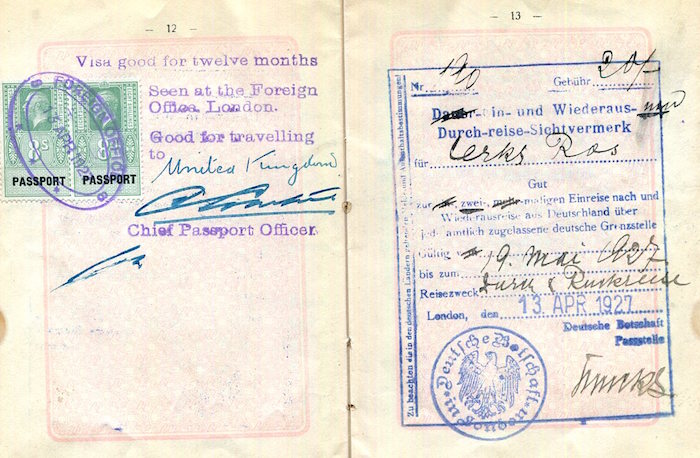 — 12 —
Visa good for twelve months
Seen at the Foreign
Office, London.
Good for travelling
to
United Kingdom
Chief Passport Officer.
FOREIGN OFFICE
13 APR 192
PASSPORT
PASSPORT
— 13 —
Nr. 190 Gebühr 20/-
Dauer- in- und Wiederaus- und
Durch-reise-Sichtvermerk
für
Gut
zur zwei- maligen Einreise nach und
Wiederausreise aus Deutschland über
jede amtlich zugelassene deutsche Grenzstelle
Gültig
bis zum 19. Mai 1927
Reisezweck Durch & Rückreise
London, den 13 APR 1927
Deutsche Botschaft
Passstelle
Deutsche Botschaft
in London